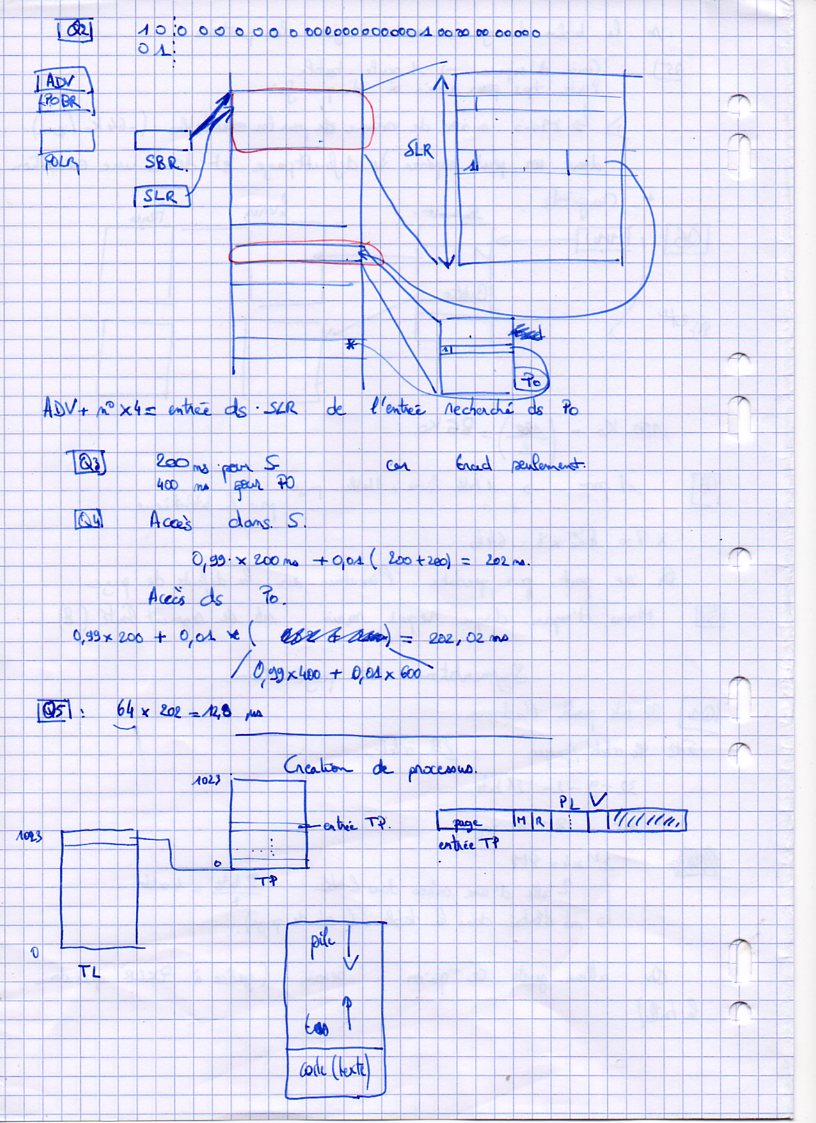 Q2 1 0 0 0 0 0 0 0 0 0 0 0 0 0 0 0 0 0 0 0 0 1 0 0 0 0 0 0 0 0 0 0
0 1
ADV
POBR
POLR
SBR
SLR
SLR
1
1
*
Po
ADV + n° x 4 = entrée ds SLR de l'entrée recherché ds Po
Q3 200 ns pour S car trad seulement.
400 ns pour P0
Q4 Accès dans S.
0,99 x 200 ns + 0,01 ( 200 + 200) = 202 ns.
Accès ds Po.
0,99 x 200 + 0,01 x ( ) = 202,02 ns
0,99 x 400 + 0,01 x 600
Q5 : 64 x 202 = 12,8 µs
Creation de processus.
1023
entrée TP.
0
TP
PL V
page M R
entrée TP
1023
0
TL
pile
tas
code (texte)